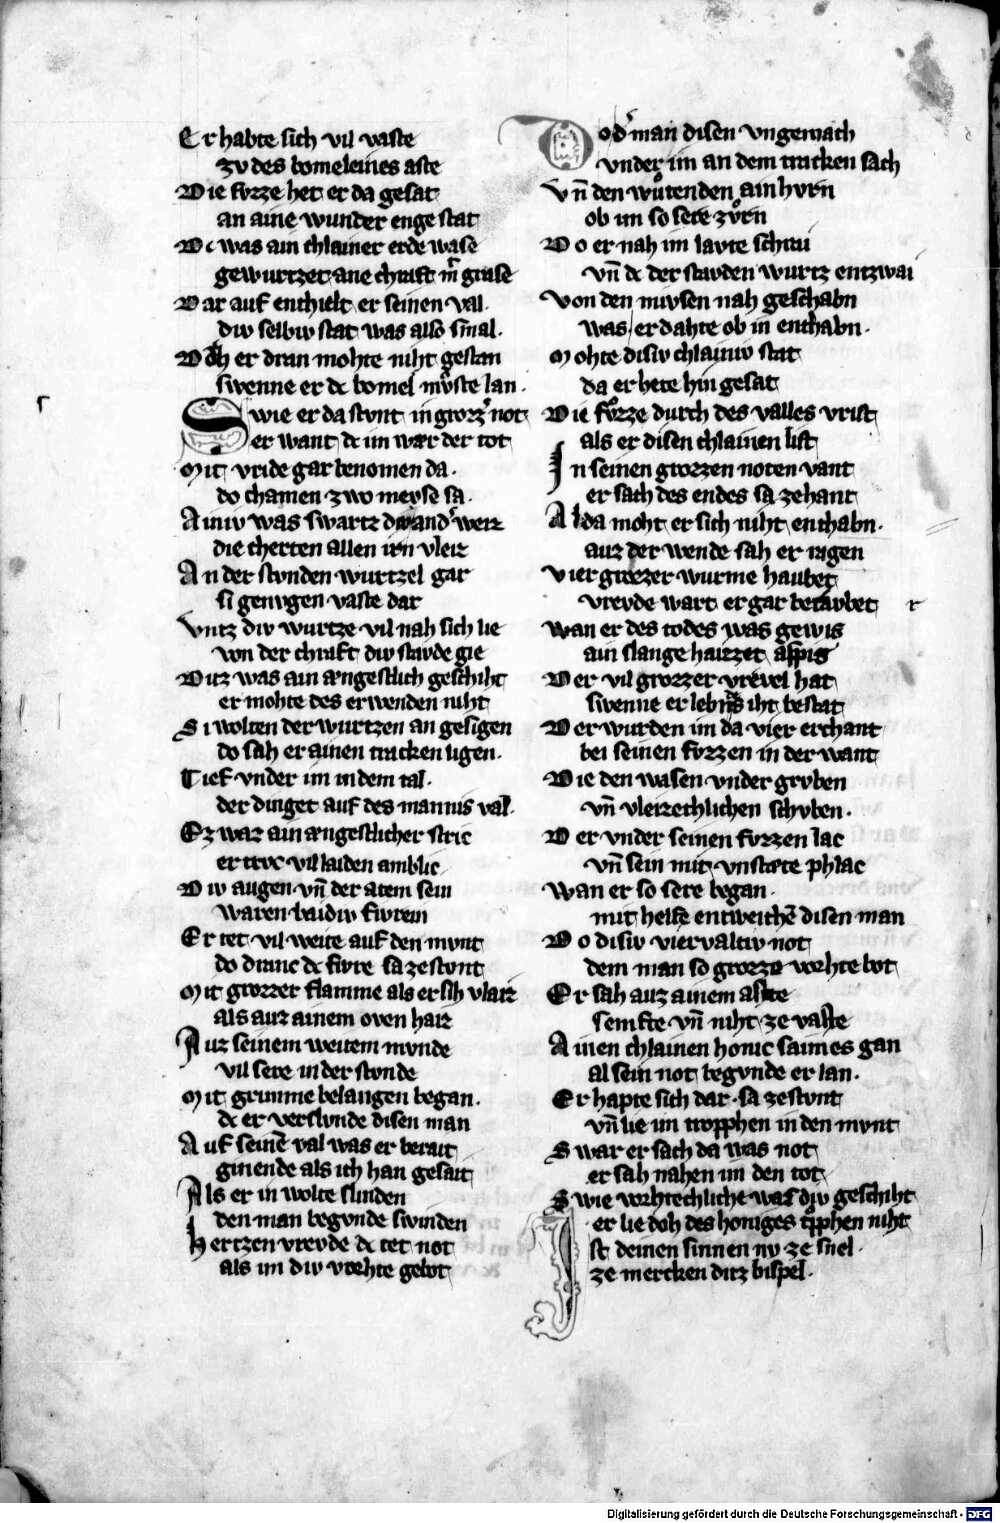 Er habte sich vil vaste
zv des bomeleines aste
Die fvzze het er da gesat
an aine wunder enge stat
Dc was ain chlainer erde wase
gewurtzet ane chraft in grase
Dar auf enthielt er seinen val.
div selbiv stat was also smal.
Dch er dran mohte niht gestan
swenne er dc bomel mvste lan.
Swie er da stvnt in grozz' not
er want dc im wær der tot
Mit vride gar benomen da.
do chamen zwo meyse sa.
Ainiv was swartz div and' weiz
die cherten allen irn vleiz
An der stvnden wurtzel gar
si genvgen vaste dar
vntz div wurtze vil nah sich lie
von der chraft div stavde gie
Ditz was ain ængestlich geschiht
er mohte des erwenden niht
Si wolten der wurtzen an gesigen
do sah er ainen tracken ligen.
Tief vnder im in dem tal.
der dinget auf des mannis val.
Ez waz ain ængestlicher stric
er trvc vil laiden anblic
Div augen vn̄ der atem sein
waren baidiv fivrein
Er tet vil weite auf den mvnt
do dranc dc fivre sa zestvnt
Mit grozzer flamme als er sih vlaiz
als auz ainem oven haiz
Auz seinem weitem mvnde
vil sere in der stvnde
Mit grimme belangen began.
dc er verslvnde disen man
Auf seinē val was er berait
ginende als ich han gesait
Als er in wolte slinden
den man begvnde swinden
Hertzen vrevde dc tet not
als im div vorhte gebot
Do d' man disen vngemach
vnder im an dem tracken sach
Vn̄ den wůtenden ainhvrn
ob im so sere zvrn
Do er nah im lavte schrai
vn̄ dc der stavden wurtz entzwai
Von den mivsen nah geschabn
was er dahte ob in enthabn.
Mohte disiv chlainiv stat
da er hete hin gesat
Die fvzze durch des valles vrist
als er disen chlainen list
In seinen grozzen noten vant
er sach des endes sa zehant
Alda moht er sich niht enthabn.
auz der wende sah er ragen
Vier grozer wurme haubet
vrevde wart er gar betavbet
Wan er des todes was gewis
ain slange haizzet aspis
Der vil grozzer vrevel hat
swenne er lebns iht bestat
Der wurden im da vier erchant
bei seinen fvzzen in der want
Die den wasen vnder grvben
vn̄ vleizechlichen schvben.
Der vnder seinen fvzzen lac
vn̄ sein mit vnstæte phlac
Wan er so sere began.
mit helfe entweichē disen man
Do disiv viervaltiv not
dem man so grozze vorhte bot
Er sah auz ainem aste
semfte vn̄ niht ze vaste
Ainen chlainen honic saimes gan
al sein not begvnde er lan.
Er hapte sich dar sa zestvnt
vn̄ lie im tropphen in den mvnt
Swar er sach da was not
er sah nahen im den tot
Swie vorhtechliche was div geschiht
er lie doh des honiges trpphen niht
Ist deinen sinnen nv ze snel.
ze mercken ditz bispel.
Digitalisierung gefördert durch die Deutsche Forschungsgemeinschaft - DFG